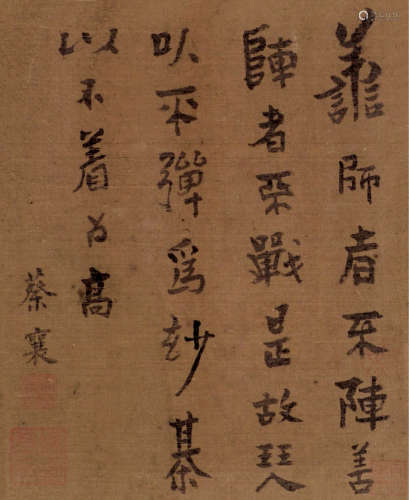 善誥師者不陣善
陣者不戰是故琴
以平彈爲妙棊
以不着為高
蔡襄